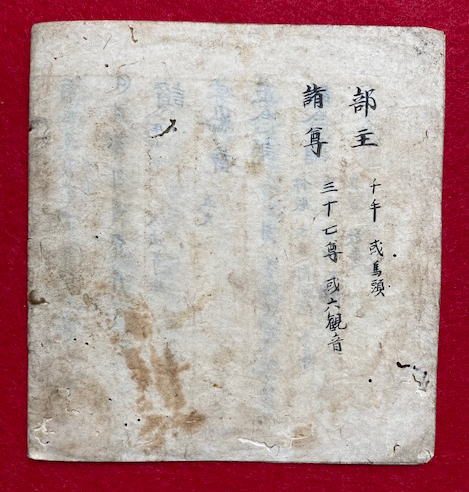 部主 千手 或馬頭
諸尊 三十七尊 或六観音